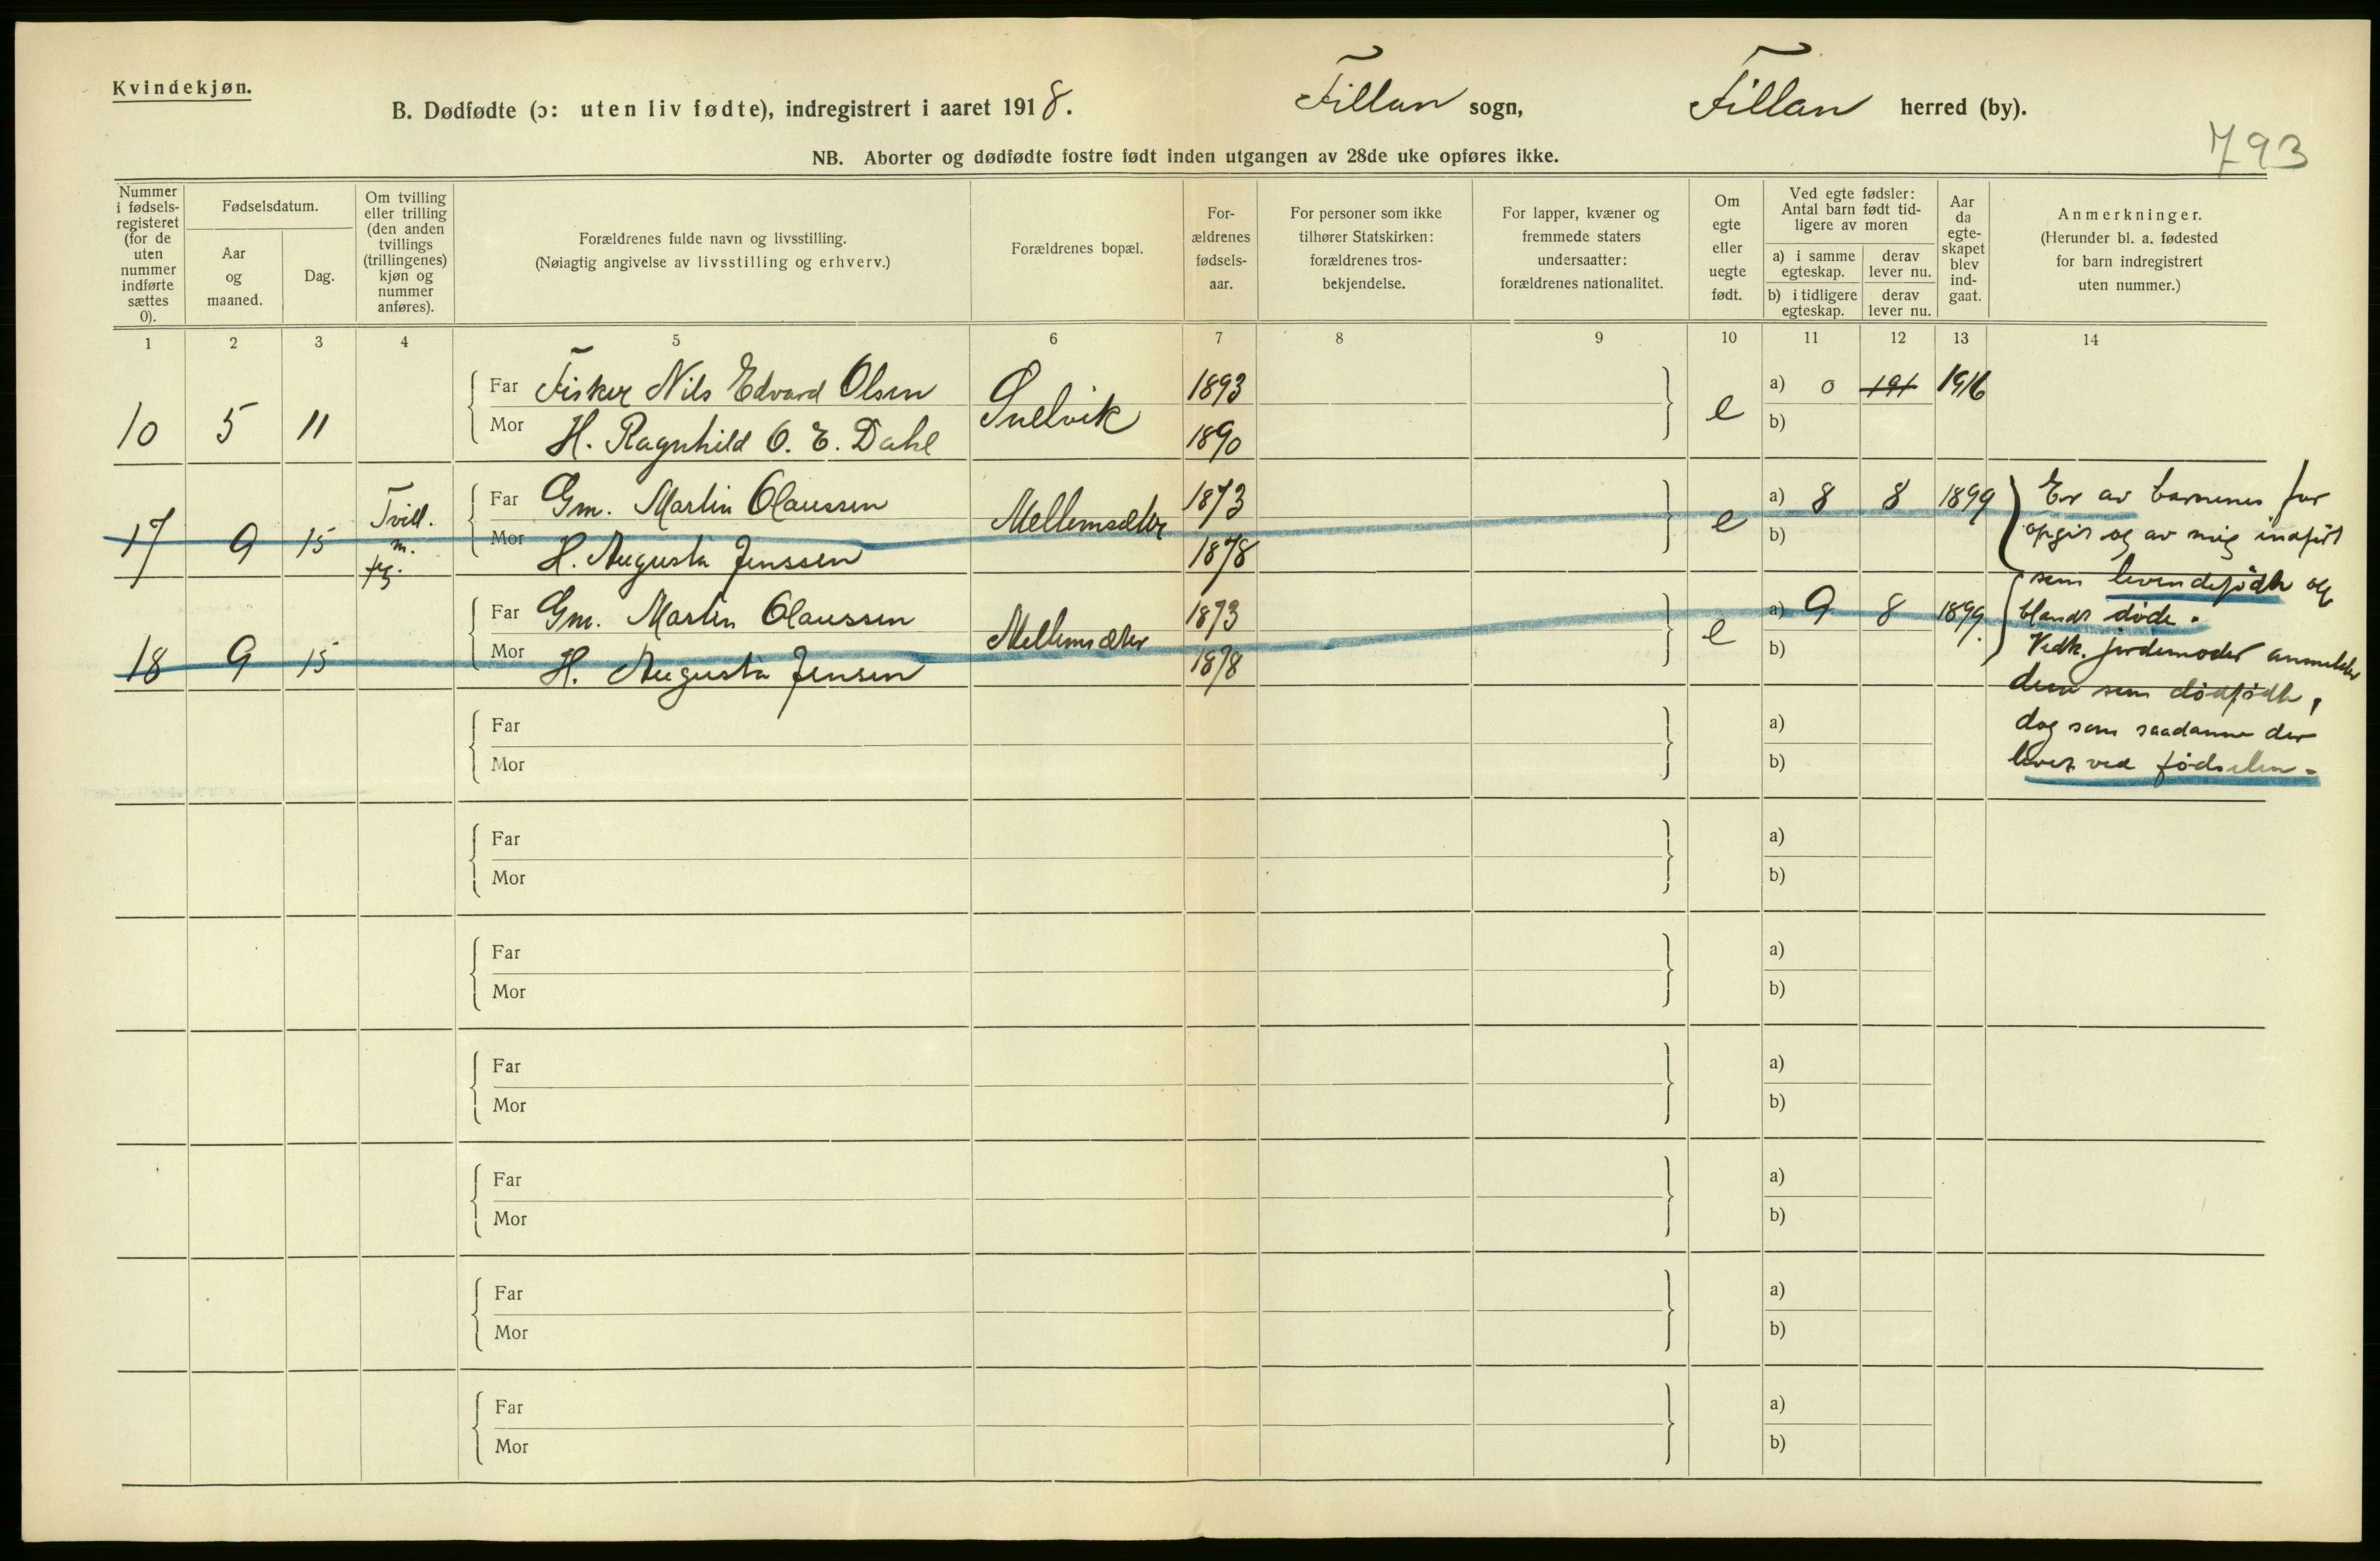 Kvindekjøn.
B. Dødfødte (ɔ: uten liv fødte), indregistrert i aaret 1918. Fillan sogn, Fillan herred (by).
793
NB. Aborter og dødfødte fostre født inden utgangen av 28de uke opføres ikke.
Nummer i fødsels-registeret (for de uten nummer indførte sættes 0).
Fødselsdatum.
Aar og maaned.
Dag.
Om tvilling eller trilling (den anden tvillings (trillingenes) kjøn og nummer anføres).
Forældrenes fulde navn og livsstilling.
(Nøiagtig angivelse av livsstilling og erhverv.)
Forældrenes bopæl.
For-ældrenes fødsels-aar.
For personer som ikke tilhører Statskirken: forældrenes tros-bekjendelse.
For lapper, kvæner og fremmede staters undersaatter: forældrenes nationalitet.
Om egte eller uegte født.
Ved egte fødsler: Antal barn født tid-ligere av moren
a) i samme egteskap.
derav lever nu.
b) i tidligere egteskap.
derav lever nu.
Aar da egte-skapet blev ind-gaat.
Anmerkninger.
(Herunder bl. a. fødested for barn indregistrert uten nummer.)
1 2 3 4 5 6 7 8 9 10 11 12 13 14
Far Fisker Nils Edvard Olsen 1893 a) 0 191 1916
10 5 11 Snelvik e
Mor H. Ragnhild O. E. Dahl 1890 b)
Far Gm. Martin Olaussen 1873 a) 8 8 1899
17 9 15 Tvill. m. Mellemsæter e
Mor H. Augusta Jenssen 1878 b)
Far Gm. Martin Olaussen 1873 a) 9 8 1899.
18 9 15 Mellemsæter e
Mor H. Augusta Jensen 1878 b)
Er av barnenes far
opgit og av mig indført
som levendefødte og
blandt døde.
Vedk. jordemoder anmelder
dem som dødfødte,
dog som saadanne der
levet ved fødselen.
Far a)
Mor b)
Far a)
Mor b)
Far a)
Mor b)
Far a)
Mor b)
Far a)
Mor b)
Far a)
Mor b)
Far a)
Mor b)